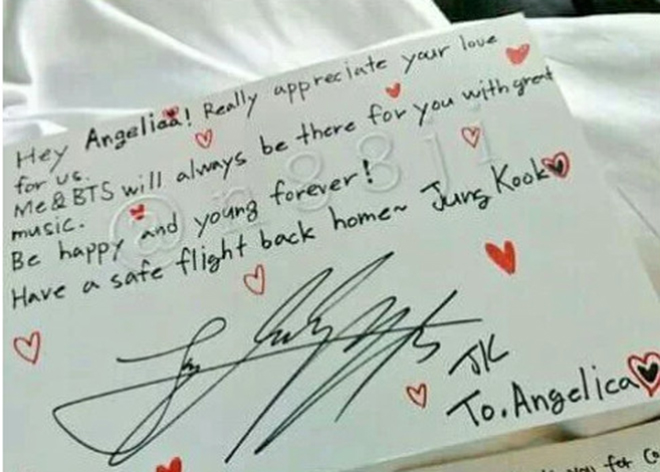 Hey Angeliaa! Really appreciate your love
for us.
Me & BTS will always be there for you with great
music.
Be happy and young forever!
Have a safe flight back home~ Jung Kook
@n88ji
JK
To. Angelica
you for Co